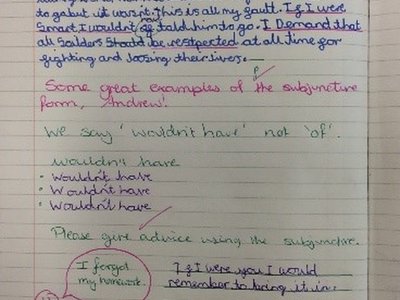 to gabut it wasnt. This is all my fault. If I were
Smart I wouldn't have told him to go. I Demand that
all Solders should be restpected at all time for
fighting and loosing their lives.
P
Some great examples of the subjunctive
form, Andrew!
We say 'wouldn't have' not 'of'.
wouldn't have
• wouldn't have
• Wouldn't have
• Wouldn't have
Please give advice using the subjunctive.
I forgot
my homework.
If I were you I would
remember to bring it in.